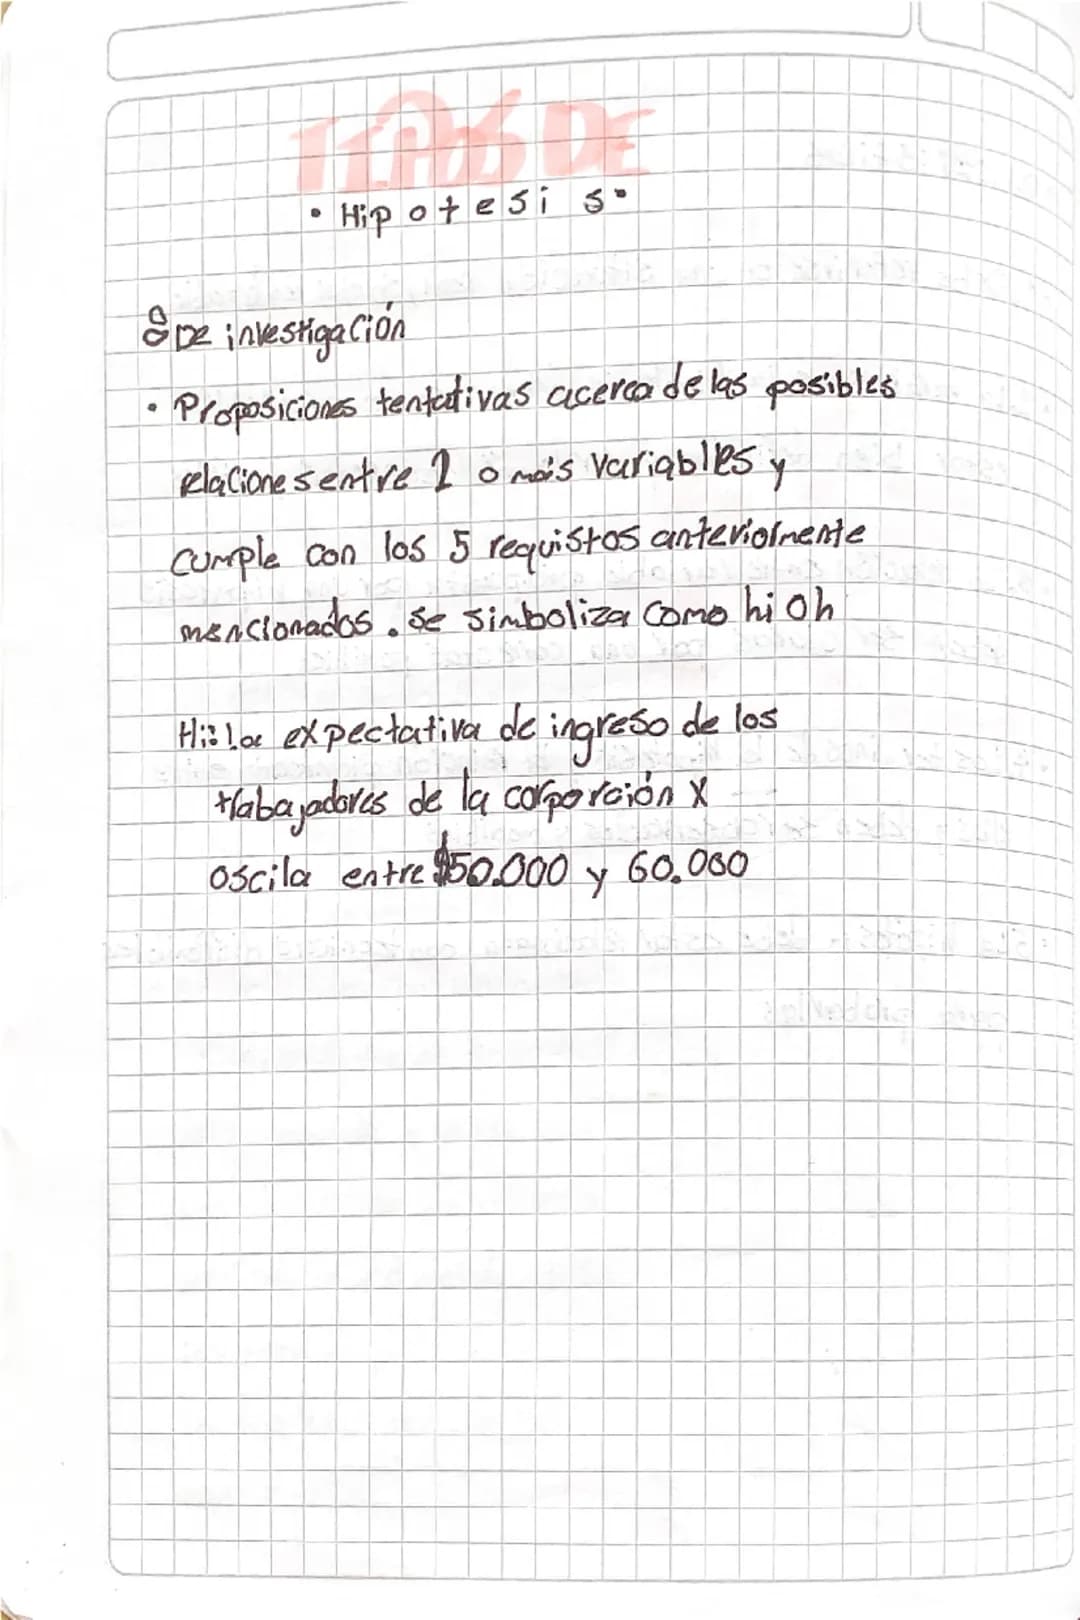 TIPOS DE
• Hipotesi s•
DE investigación
• Proposiciones tentativas acerca de las posibles
relaciones entre 2 o más variables y
cumple con los 5 requistos anteriormente
mencionados. Se simboliza como hi oh
Hi: la expectativa de ingreso de los
trabajadores de la corporción X
oscila entre $50.000 y 60.000